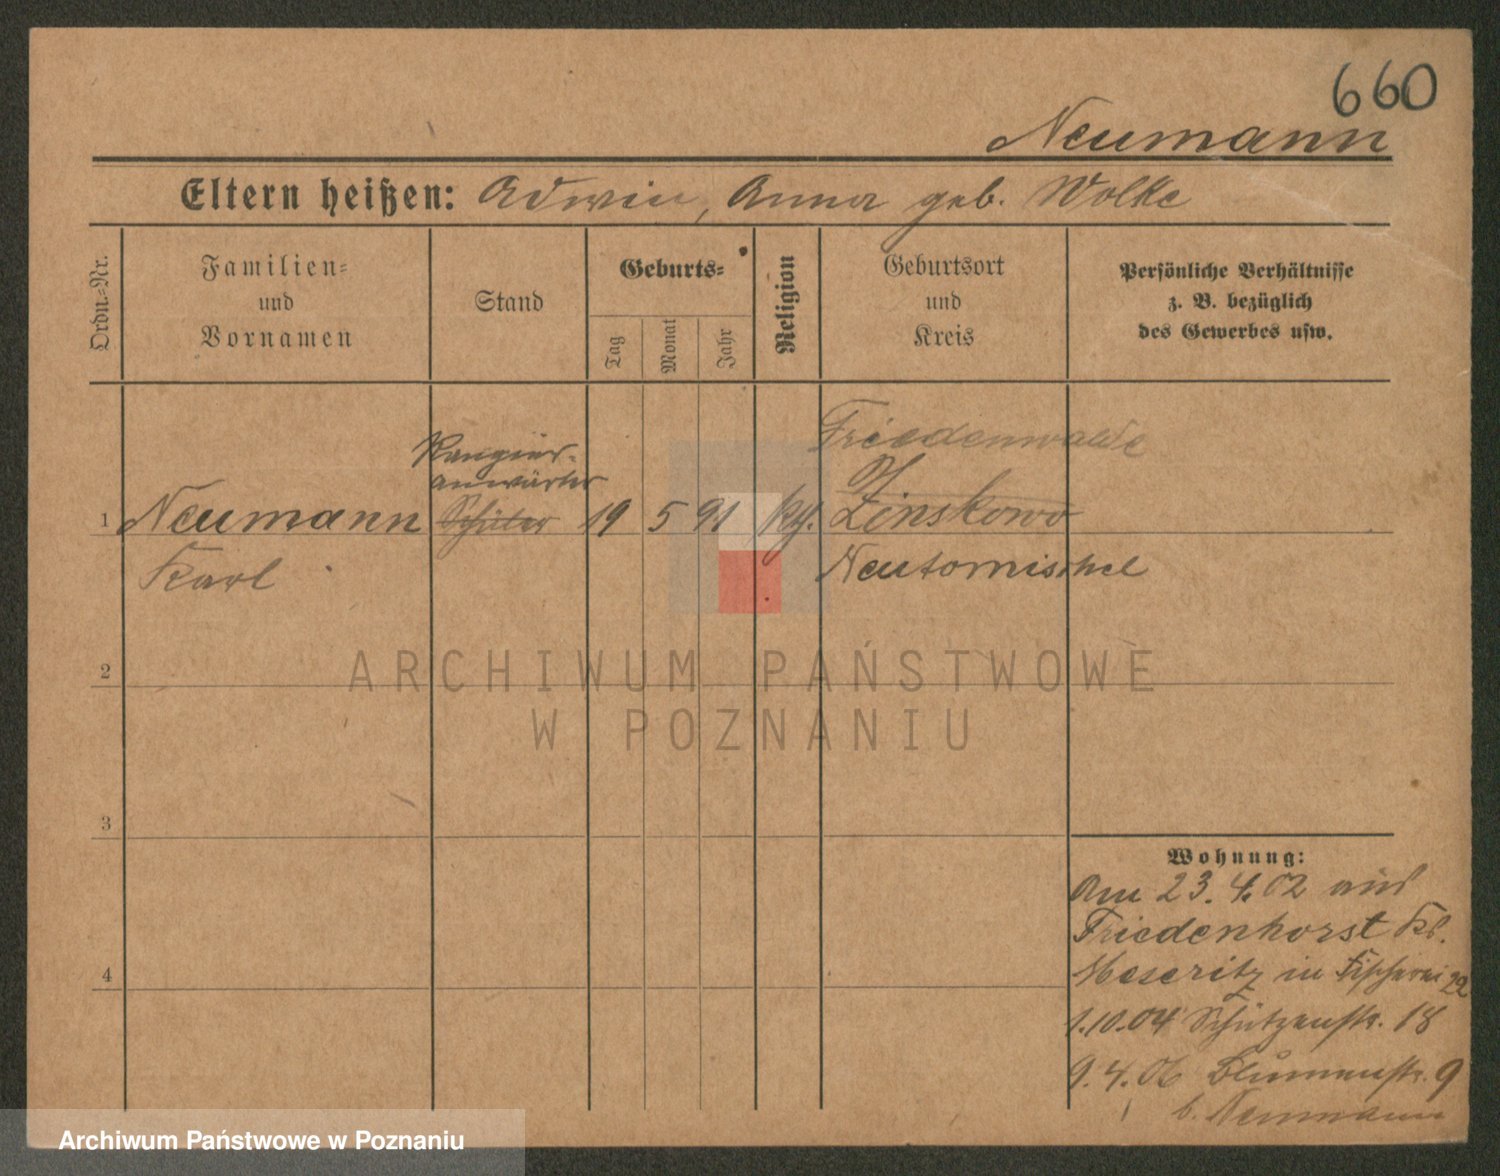 660
Neumann
Eltern heißen: Edwin, Anna geb. Wolke
Ordn.-Nr.
Familien- und Vornamen
Stand
Geburts-
Tag
Monat
Jahr
Religion
Geburtsort und Kreis
Persönliche Verhältnisse
z. B. bezüglich
des Gewerbes usw.
Rangier-
anwärter
Friedenwalde
1 Neumann Schüler 19 5 91 kth. Zinskowo
Karl Neutomischel
2
3
4
Wohnung:
Am 23.4.02 aus
Friedenhorst Kr.
Meseritz in Fischerei 22
1.10.04 Schützenstr. 18
9.4.06 Blumenstr. 9
b. Neumann
ARCHIWUM PAŃSTWOWE
W POZNANIU
Archiwum Państwowe w Poznaniu